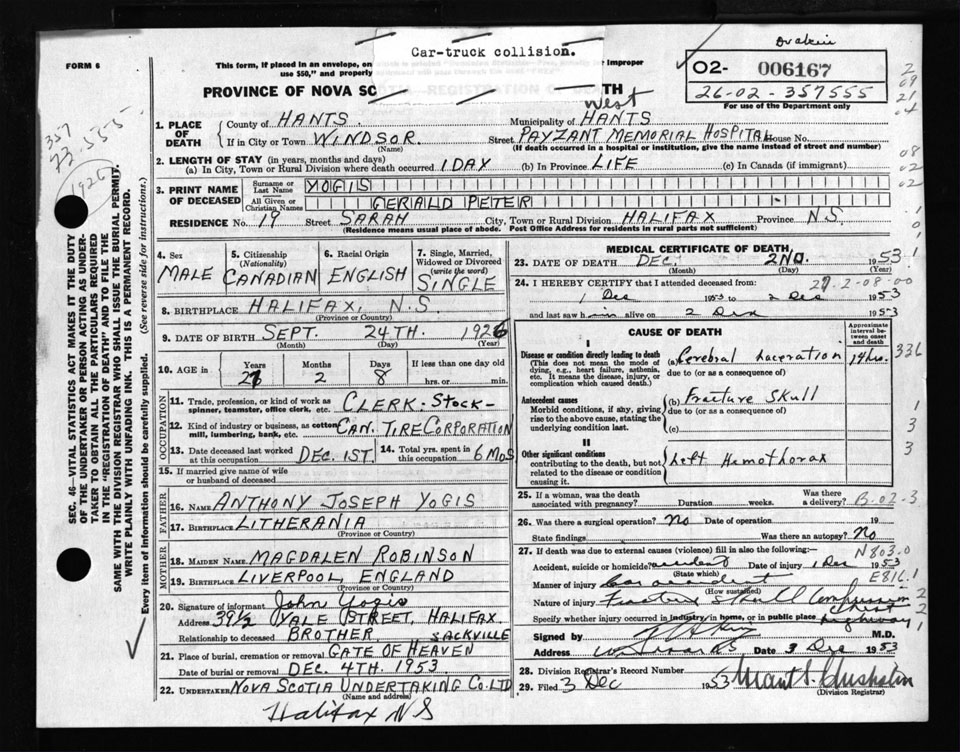 Drakin
Car-truck collision.
FORM 6
This form, if placed in an envelope, on
Improper
use $50," and properly
02- 006167
26-02-357555
For use of the Department only
PROVINCE OF NOVA SC
TH
357
22-555
1926
2
09
21
04
08
02
02
1
0
1
West
1. PLACE OF DEATH
County of HANTS Municipality of HANTS
If in City or Town WINDSOR. Street PAYZANT MEMORIAL HOSPITAL House No.
(Name) (If death occurred in a hospital or institution, give the name instead of street and number)
2. LENGTH OF STAY (in years, months and days)
(a) In City, Town or Rural Division where death occurred 1 DAY (b) In Province LIFE (c) In Canada (if immigrant)
3. PRINT NAME OF DECEASED
Surname or Last Name YOGIS
All Given or Christian Names GERALD PETER
RESIDENCE No. 19 Street SARAH City, Town or Rural Division HALIFAX Province N.S.
(Residence means usual place of abode. Post Office Address for residents in rural parts not sufficient)
SEC. 46—VITAL STATISTICS ACT MAKES IT THE DUTY
OF THE UNDERTAKER OR PERSON ACTING AS UNDER-
TAKER TO OBTAIN ALL THE PARTICULARS REQUIRED
IN THE "REGISTRATION OF DEATH" AND TO FILE THE
SAME WITH THE DIVISION REGISTRAR WHO SHALL ISSUE THE BURIAL PERMIT.
WRITE PLAINLY WITH UNFADING INK. THIS IS A PERMANENT RECORD.
Every item of Information should be carefully supplied. (See reverse side for instructions.)
4. Sex MALE
5. Citizenship (Nationality) CANADIAN
6. Racial Origin ENGLISH
7. Single, Married, Widowed or Divorced (write the word) SINGLE
8. BIRTHPLACE HALIFAX, N.S.
(Province or Country)
9. DATE OF BIRTH SEPT. 24TH. 1926
(Month) (Day) (Year)
10. AGE in Years Months Days If less than one day
27 2 8 hrs. or min.
OCCUPATION
11. Trade, profession, or kind of work as spinner, teamster, office clerk, etc. CLERK-STOCK-
12. Kind of industry or business, as cotton mill, lumbering, bank, etc. CAN. TIRE CORPORATION
13. Date deceased last worked at this occupation DEC. 1ST.
14. Total yrs. spent in this occupation 6 MOS
15. If married give name of wife or husband of deceased
FATHER
16. NAME ANTHONY JOSEPH YOGIS
17. BIRTHPLACE LITHERANIA
(Province or Country)
MOTHER
18. MAIDEN NAME MAGDALEN ROBINSON
19. BIRTHPLACE LIVERPOOL, ENGLAND
(Province or Country)
20. Signature of informant John Yogis
Address 39½ YALE STREET, HALIFAX.
Relationship to deceased BROTHER. SACKVILLE
21. Place of burial, cremation or removal GATE OF HEAVEN
Date of burial or removal DEC. 4TH. 1953
22. UNDERTAKER NOVA SCOTIA UNDERTAKING CO. LTD
(Name and address)
Halifax NS
MEDICAL CERTIFICATE OF DEATH
23. DATE OF DEATH DEC. 2ND. 1953
(Month) (Day) (Year)
24. I HEREBY CERTIFY that I attended deceased from: 27.2-08-00
1 Dec 1953 to 2 Dec 1953
and last saw him alive on 2 Dec 1953
CAUSE OF DEATH
Approximate interval between onset and death
I
Disease or condition directly leading to death
(This does not mean the mode of dying, e.g., heart failure, asthenia, etc. It means the disease, injury, or complication which caused death.)
(a) Cerebral Laceration 14 hrs. 336
due to (or as a consequence of)
Antecedent causes
Morbid conditions, if any, giving rise to the above cause, stating the underlying condition last.
(b) Fracture Skull 1
due to (or as a consequence of)
(c) 3
II
Other significant conditions
contributing to the death, but not related to the disease or condition causing it.
Left Hemothorax 3
25. If a woman, was the death associated with pregnancy? Duration weeks. Was there a delivery? B-02-3
26. Was there a surgical operation? No Date of operation 19
State findings Was there an autopsy? No
N803.0
27. If death was due to external causes (violence) fill in also the following:—
Accident, suicide or homicide? accident Date of injury 1 Dec 1953
(State which) E816.1
Manner of injury Car accident
(How sustained)
Nature of injury Fracture Skull Compression Chest 2
2
Specify whether injury occurred in industry, in home, or in public place highway 1
Signed by M.D.
Address Windsor NS Date 3 Dec 1953
28. Division Registrar's Record Number
29. Filed 3 Dec 1953
(Division Registrar)